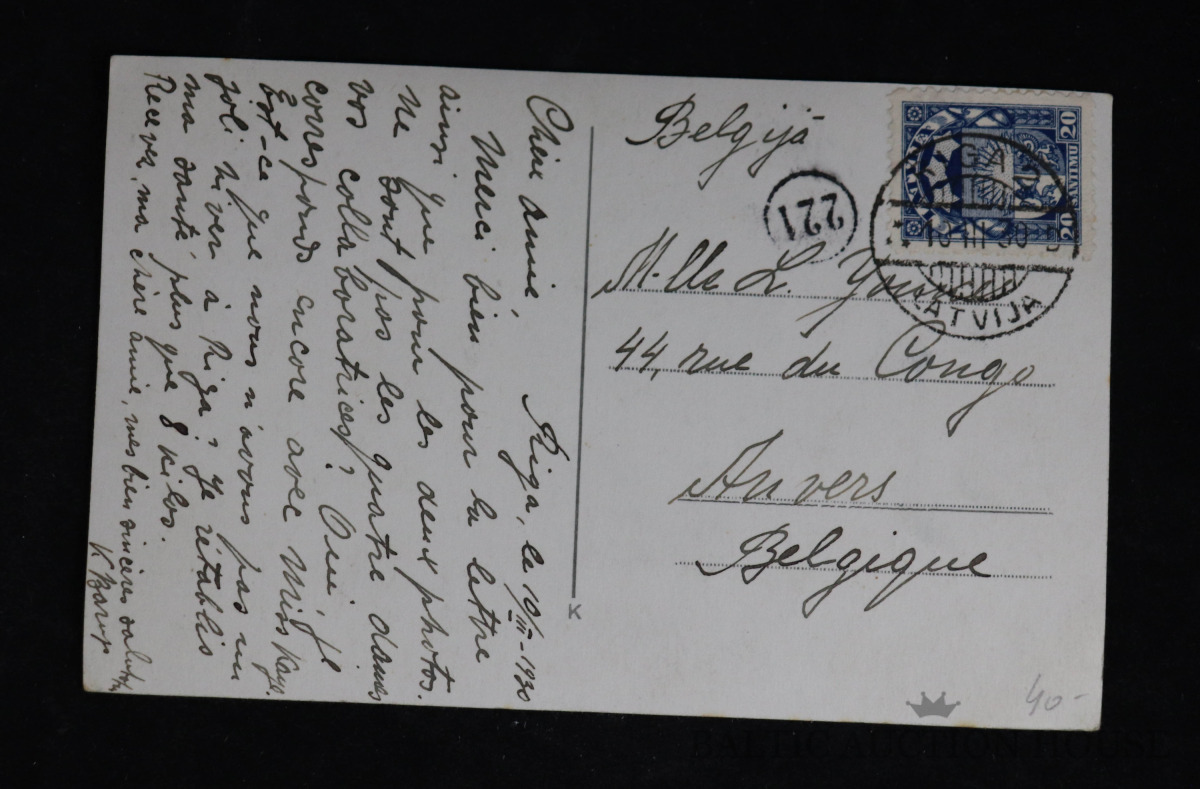 Chère amie
Riga, le 10/III-1930
Merci bien pour la lettre
ainsi que pour les deux photos.
Ne sont pas les quatre dames
vos collaboratrices? Oui, je
corresponds encore avec Miss Kaye.
Est-ce que nous n'avons pas un
joli hiver à Riga? Je rétablis
ma santé plus que 8 kilos.
Recever, ma chère amie, mes bien sincères
K
Belgijā
221
M-lle L.
44, rue du Congo
Anvers
Belgique
LATVIJA
20
SANTIMU
20
RIGA
III
LATVIJA
K
40-
BALTIC AUCTION HOUSE